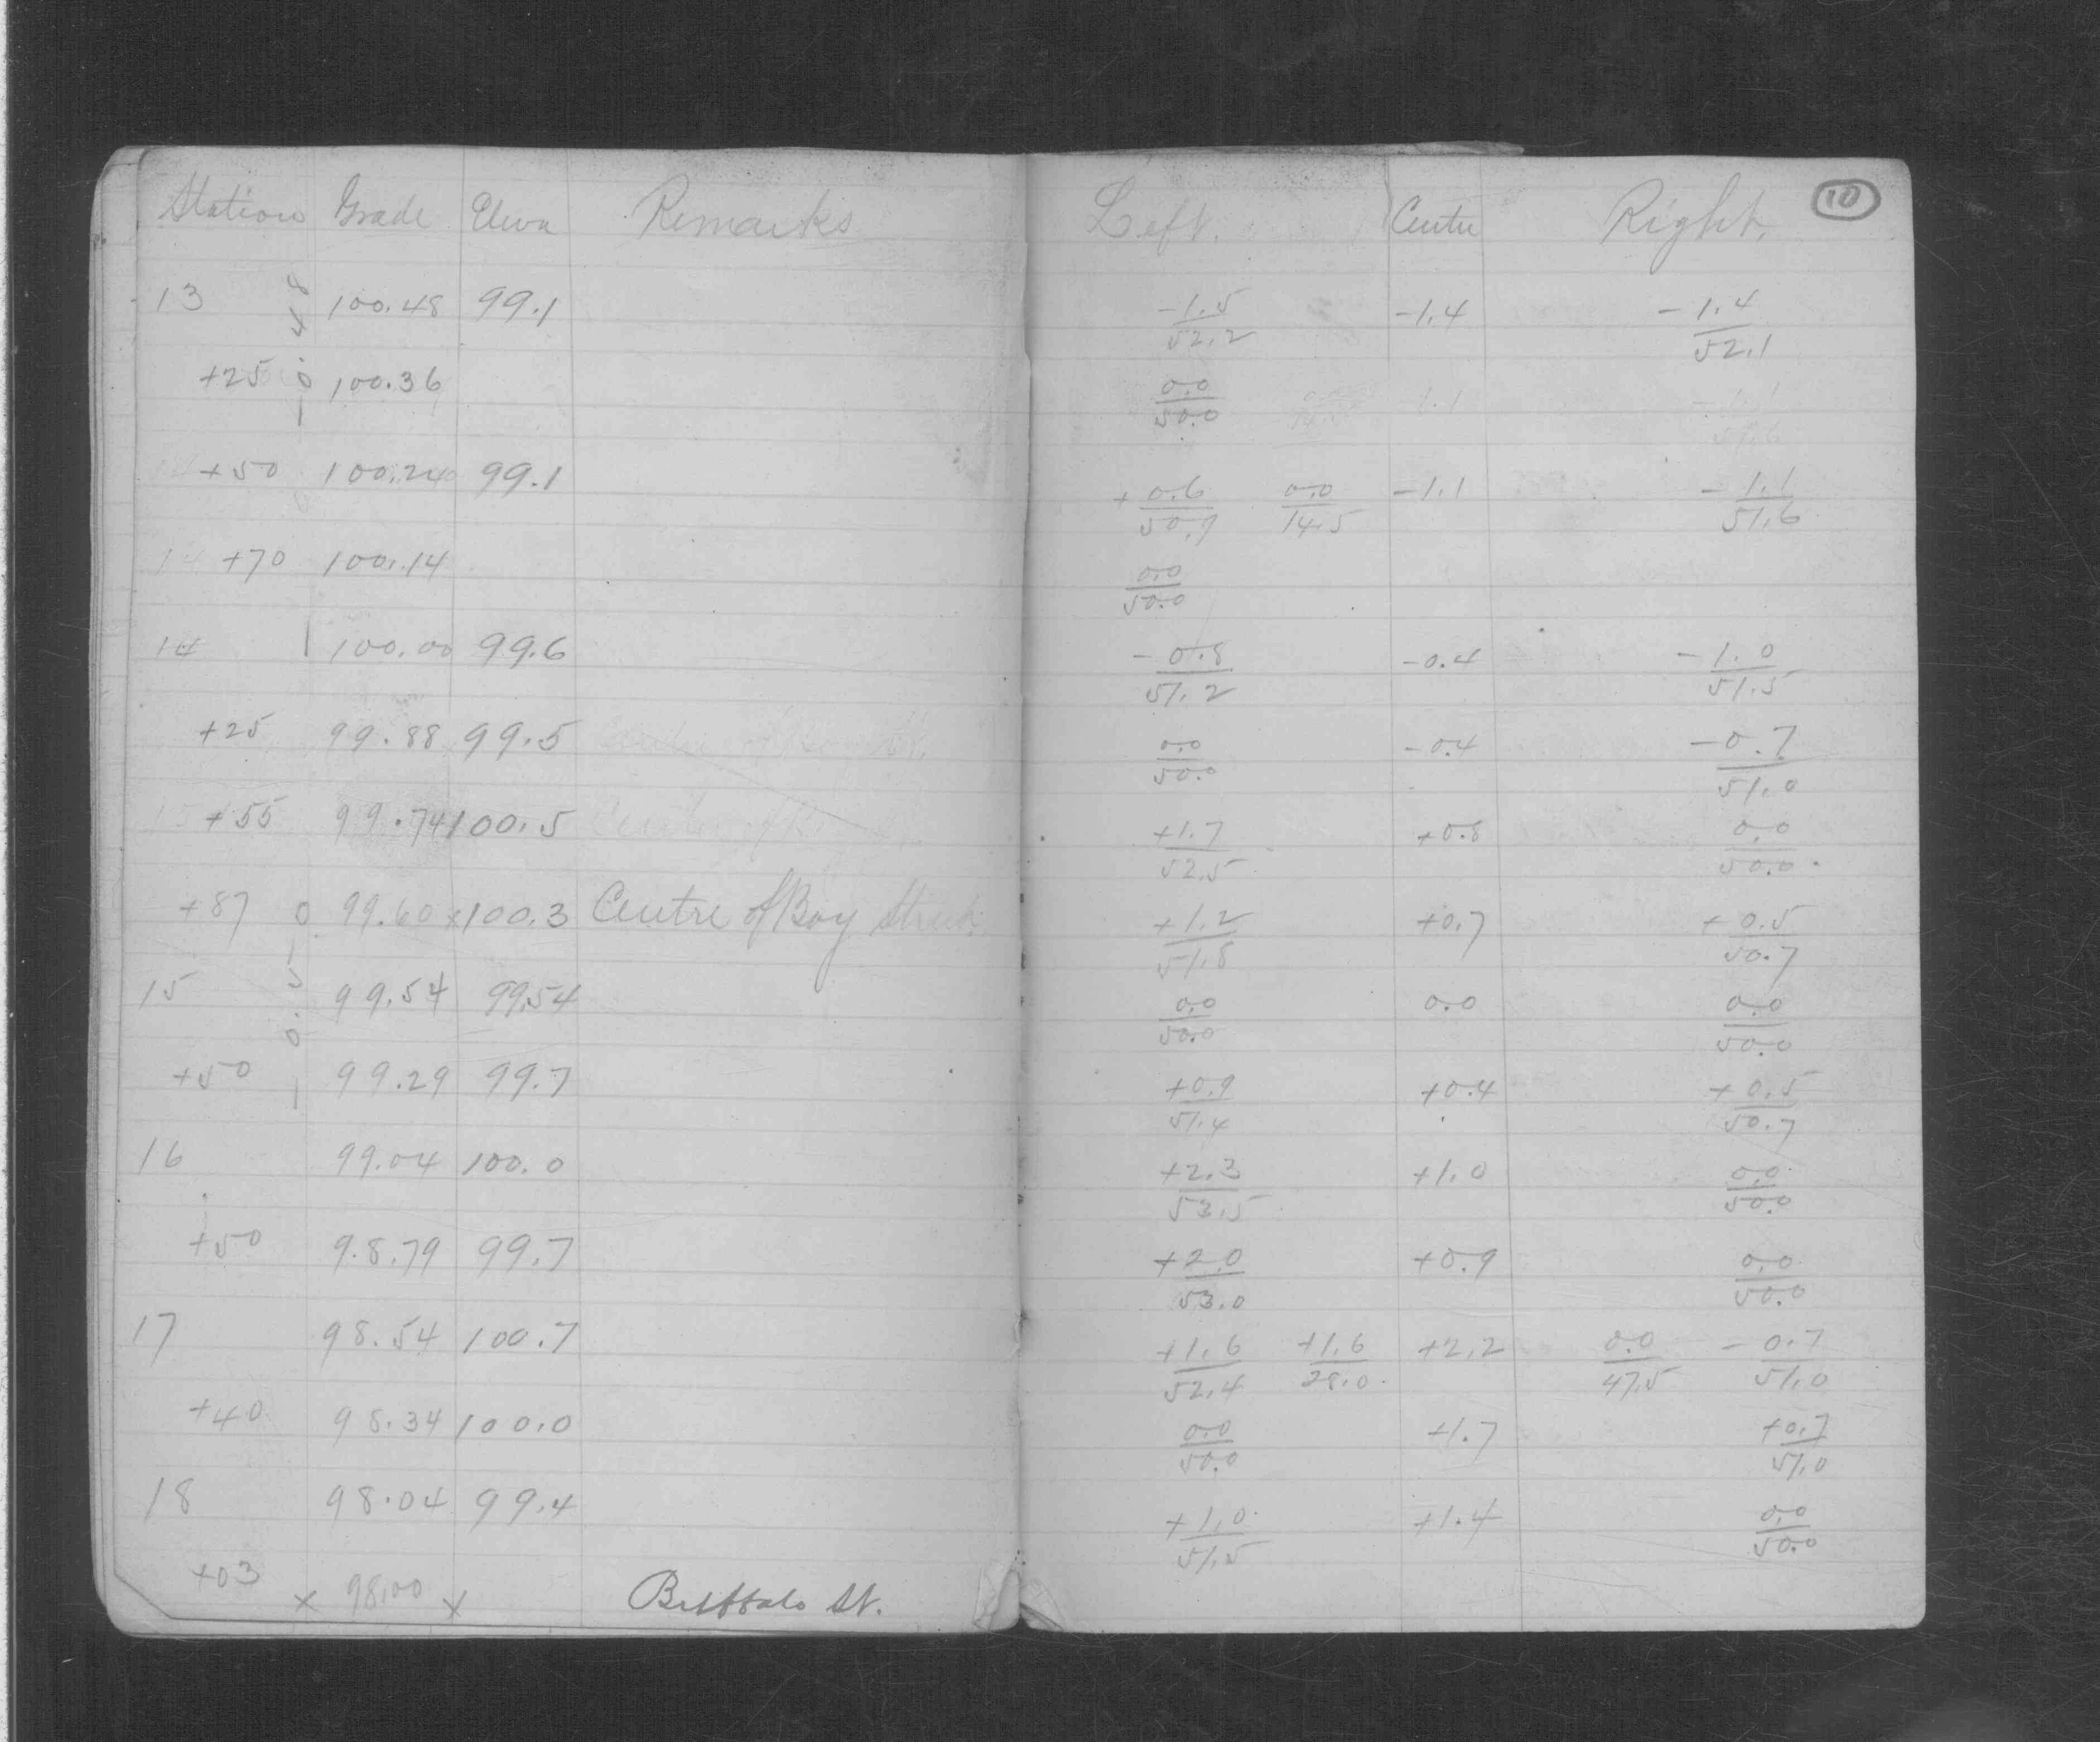 Station Grade Eleva Remarks Left. Centre Right. 10
13 100.48 99.1 -1.5/52.2 -1.4 -1.4/52.1
+25 100.36 0.0/50.0 -1.1 -1.1/51.6
+50 100.24 99.1 +0.6/50.9 0.0/14.5 -1.1 -1.1/51.6
+70 100.14 0.0/50.0
14 100.00 99.6 -0.8/51.2 -0.4 -1.0/51.5
+25 99.88 99.5 0.0/50.0 -0.4 -0.7/51.0
+55 99.74 100.5 +1.7/52.5 +0.8 0.0/50.0
+87 99.60 x 100.3 Centre of Bay Street +1.2/51.8 +0.7 +0.5/50.7
15 99.54 99.54 0.0/50.0 0.0 0.0/50.0
+50 99.29 99.7 +0.9/51.4 +0.4 +0.5/50.7
16 99.04 100.0 +2.3/53.5 +1.0 0.0/50.0
+50 98.79 99.7 +2.0/53.0 +0.9 0.0/50.0
17 98.54 100.7 +1.6/52.4 +1.6/28.0 +2.2 0.0/47.5 -0.7/51.0
+40 98.34 100.0 0.0/50.0 +1.7 +0.7/51.0
18 98.04 99.4 +1.0/51.5 +1.4 0.0/50.0
+03 x 98.00 x Buffalo St.